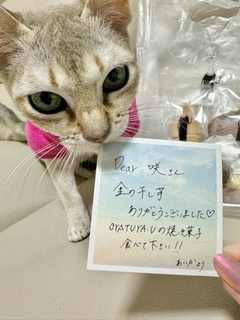 Dear 咲さん
金の干し芋
ありがとうございました♡
OYATUYA.Uの焼き菓子
食べて下さい!!
あいかより